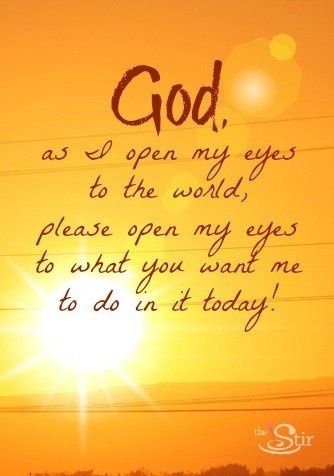 God,
as I open my eyes
to the world,
please open my eyes
to what you want me
to do in it today!
the Stir